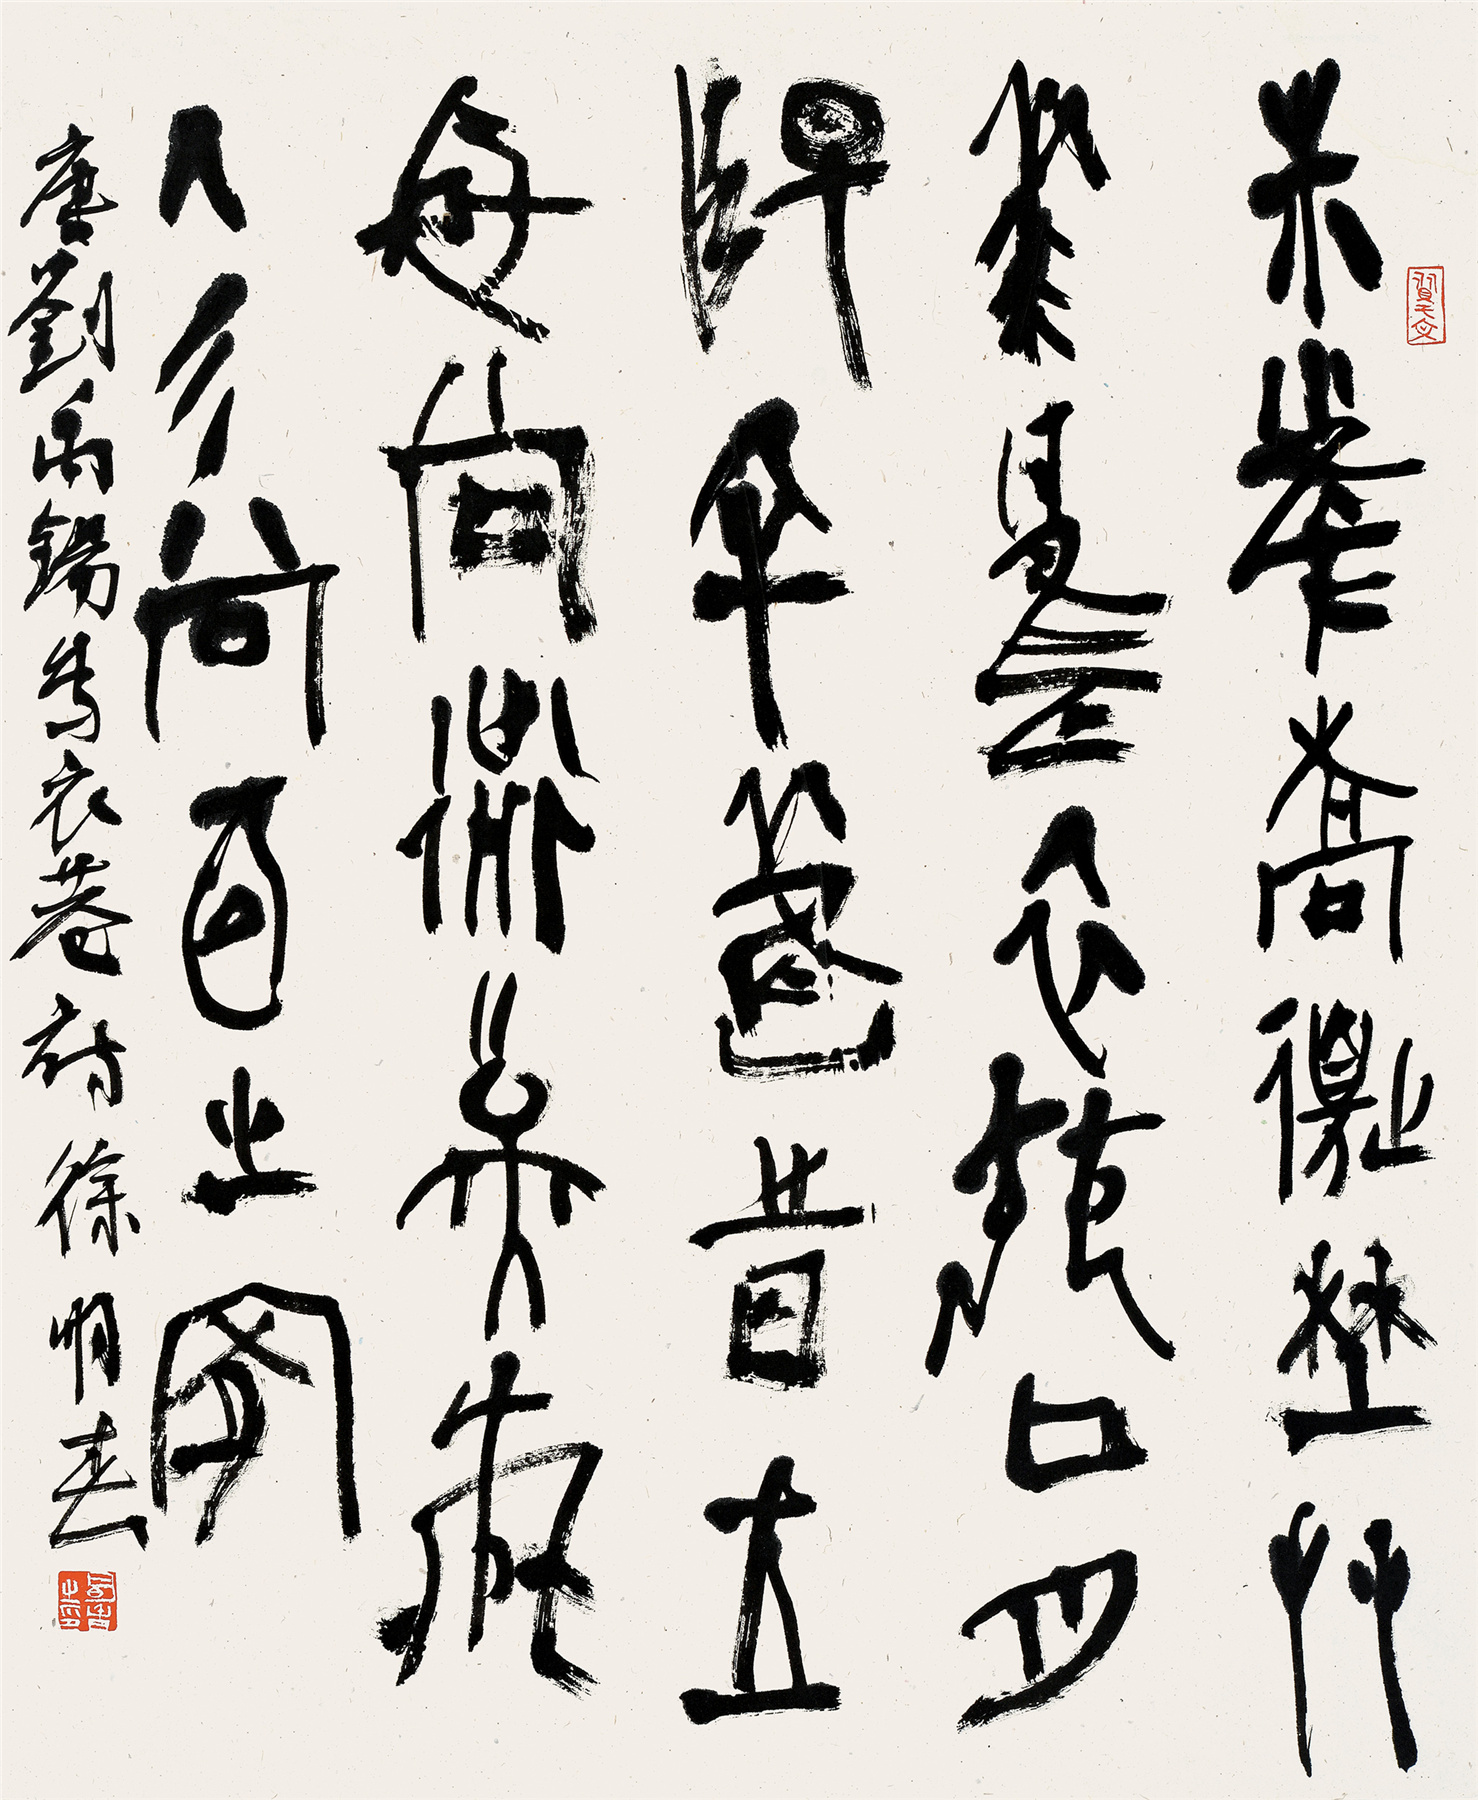 朱雀喬邊埜艸
華烏衣巷口夕
陽斜舊時王
謝堂前燕飛
入尋常百姓家
唐劉禹錫烏衣巷詩 徐明